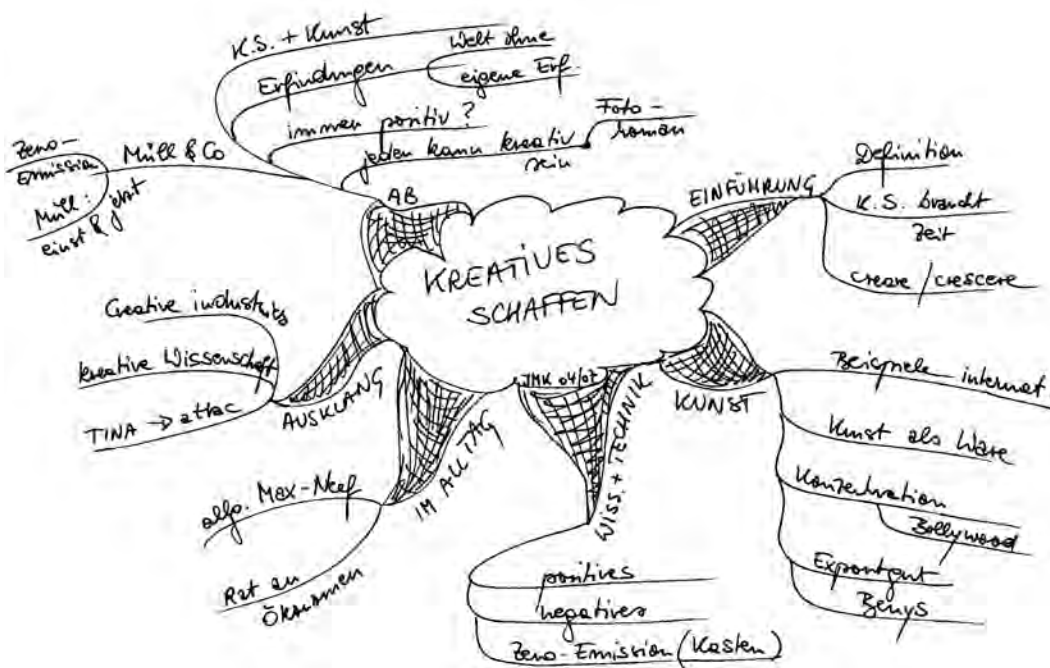 KREATIVES
SCHAFFEN
AB
K.S. + Kunst
Erfindungen
Welt ohne
eigene Erf.
immer positiv?
jeder kann kreativ
sein
Foto-
roman
Müll & Co
Zero-
Emission
Müll:
einst & jetzt
EINFÜHRUNG
Definition
K.S. braucht
Zeit
creare / crescere
KUNST
Beispiele – internat
Kunst als Ware
Konzentration
Bollywood
Exportgut
Beuys
JMK 04/07
WISS. + TECHNIK
positives
negatives
Zero-Emission (Kasten)
IM ALLTAG
allg. Max-Neef
Rat an
ÖKONOMEN
AUSKLANG
Creative industries
kreative Wissenschaft
TINA → attac